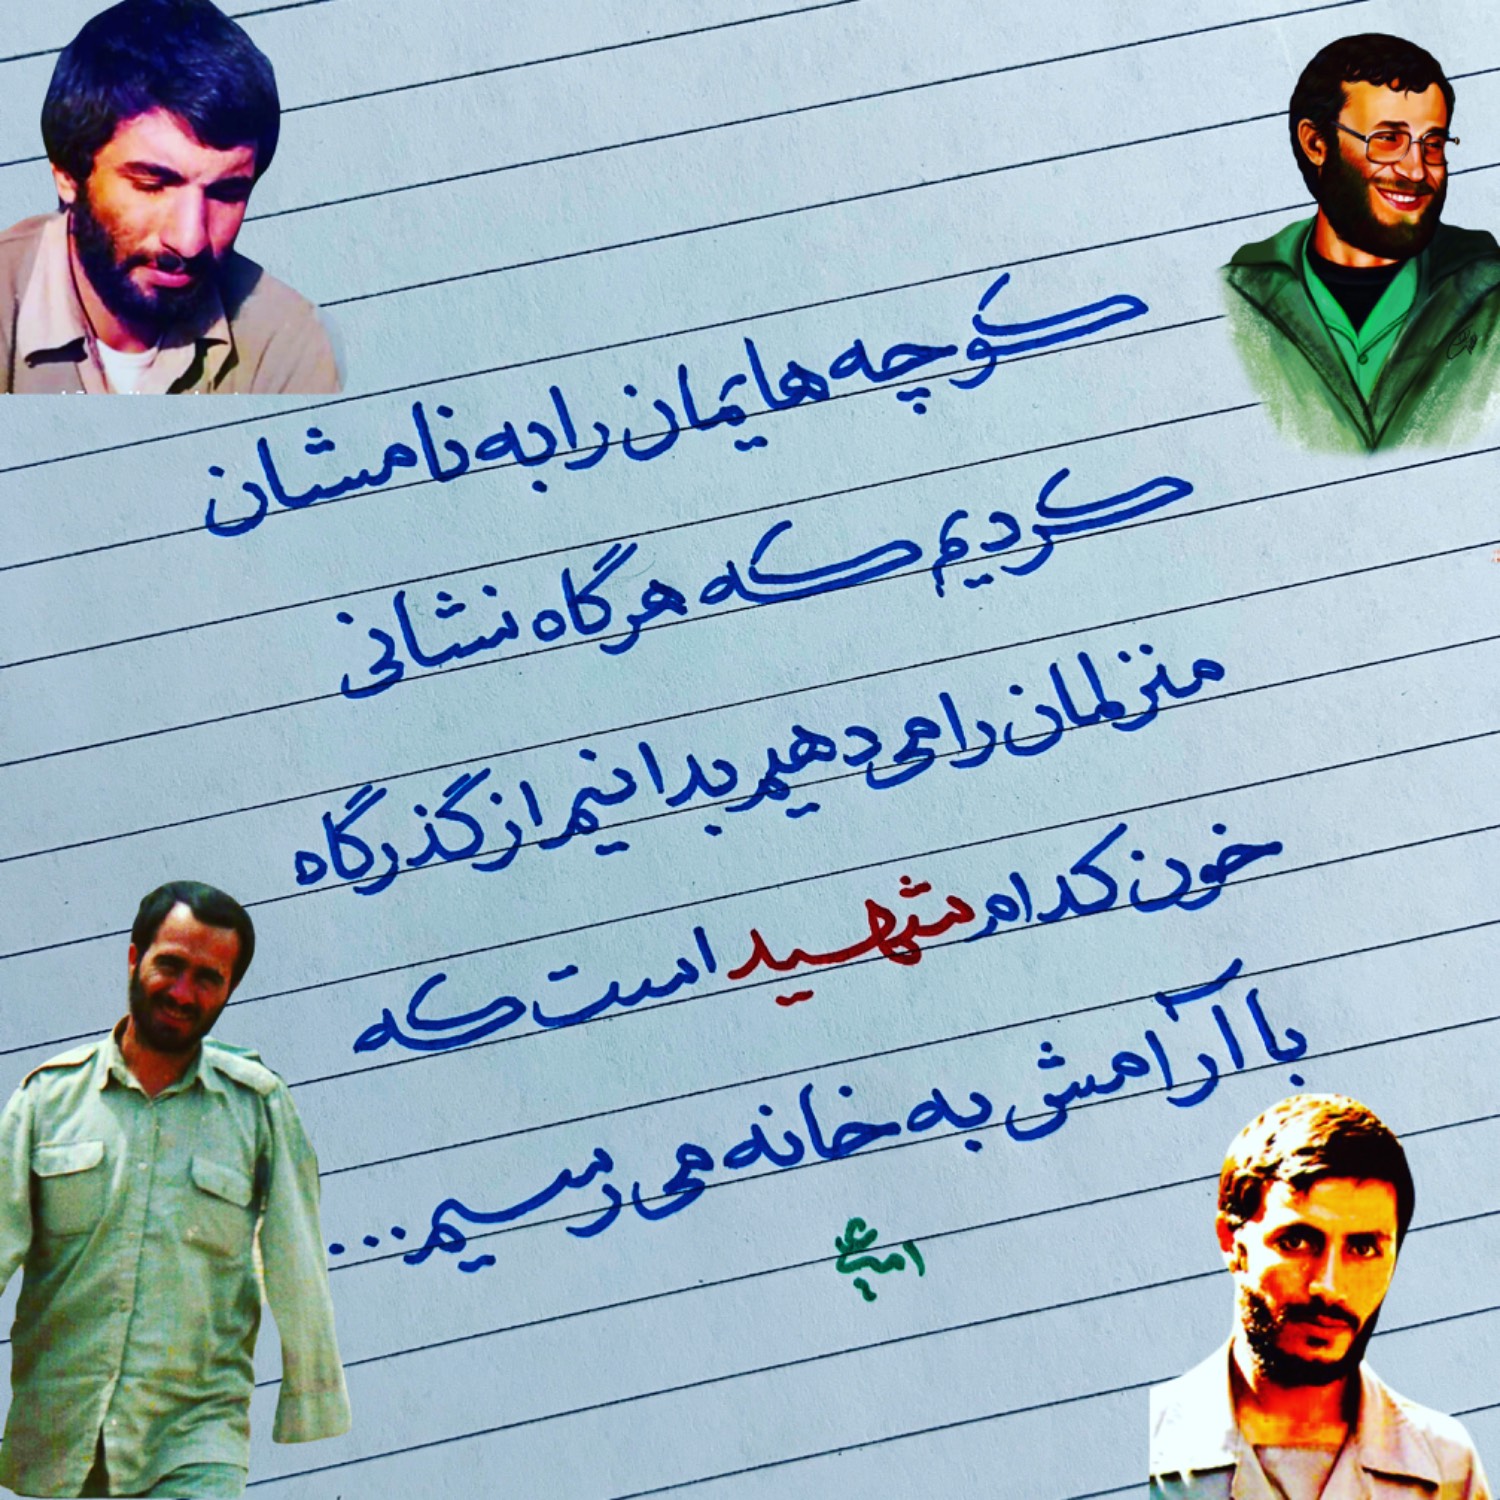 کوچه هایمان را به نامشان
کردیم که هرگاه نشانی
منزلمان را می دهیم بدانیم از گذرگاه
خون کدام شهید است که
با آرامش به خانه می رسیم...